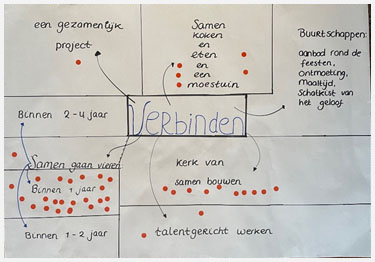 een gezamenlijk
project
Samen
koken
en
eten
en
een
moestuin
Buurtschappen:
aanbod rond de
feesten,
ontmoeting,
maaltijd,
Schatkist van
het geloof
Verbinden
Binnen 2-4 jaar
Samen gaan vieren
Binnen 1 jaar
Binnen 1-2 jaar
Kerk van
samen bouwen
talentgericht werken